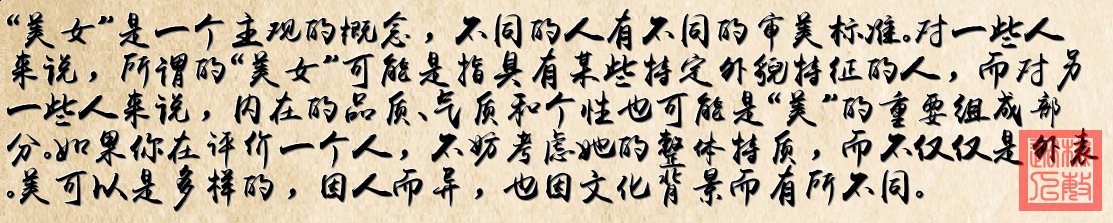 “美女”是一个主观的概念，不同的人有不同的审美标准。对一些人
来说，所谓的“美女”可能是指具有某些特定外貌特征的人，而对另
一些人来说，内在的品质、气质和个性也可能是“美”的重要组成部
分。如果你在评价一个人，不妨考虑她的整体特质，而不仅仅是外表
。美可以是多样的，因人而异，也因文化背景而有所不同。